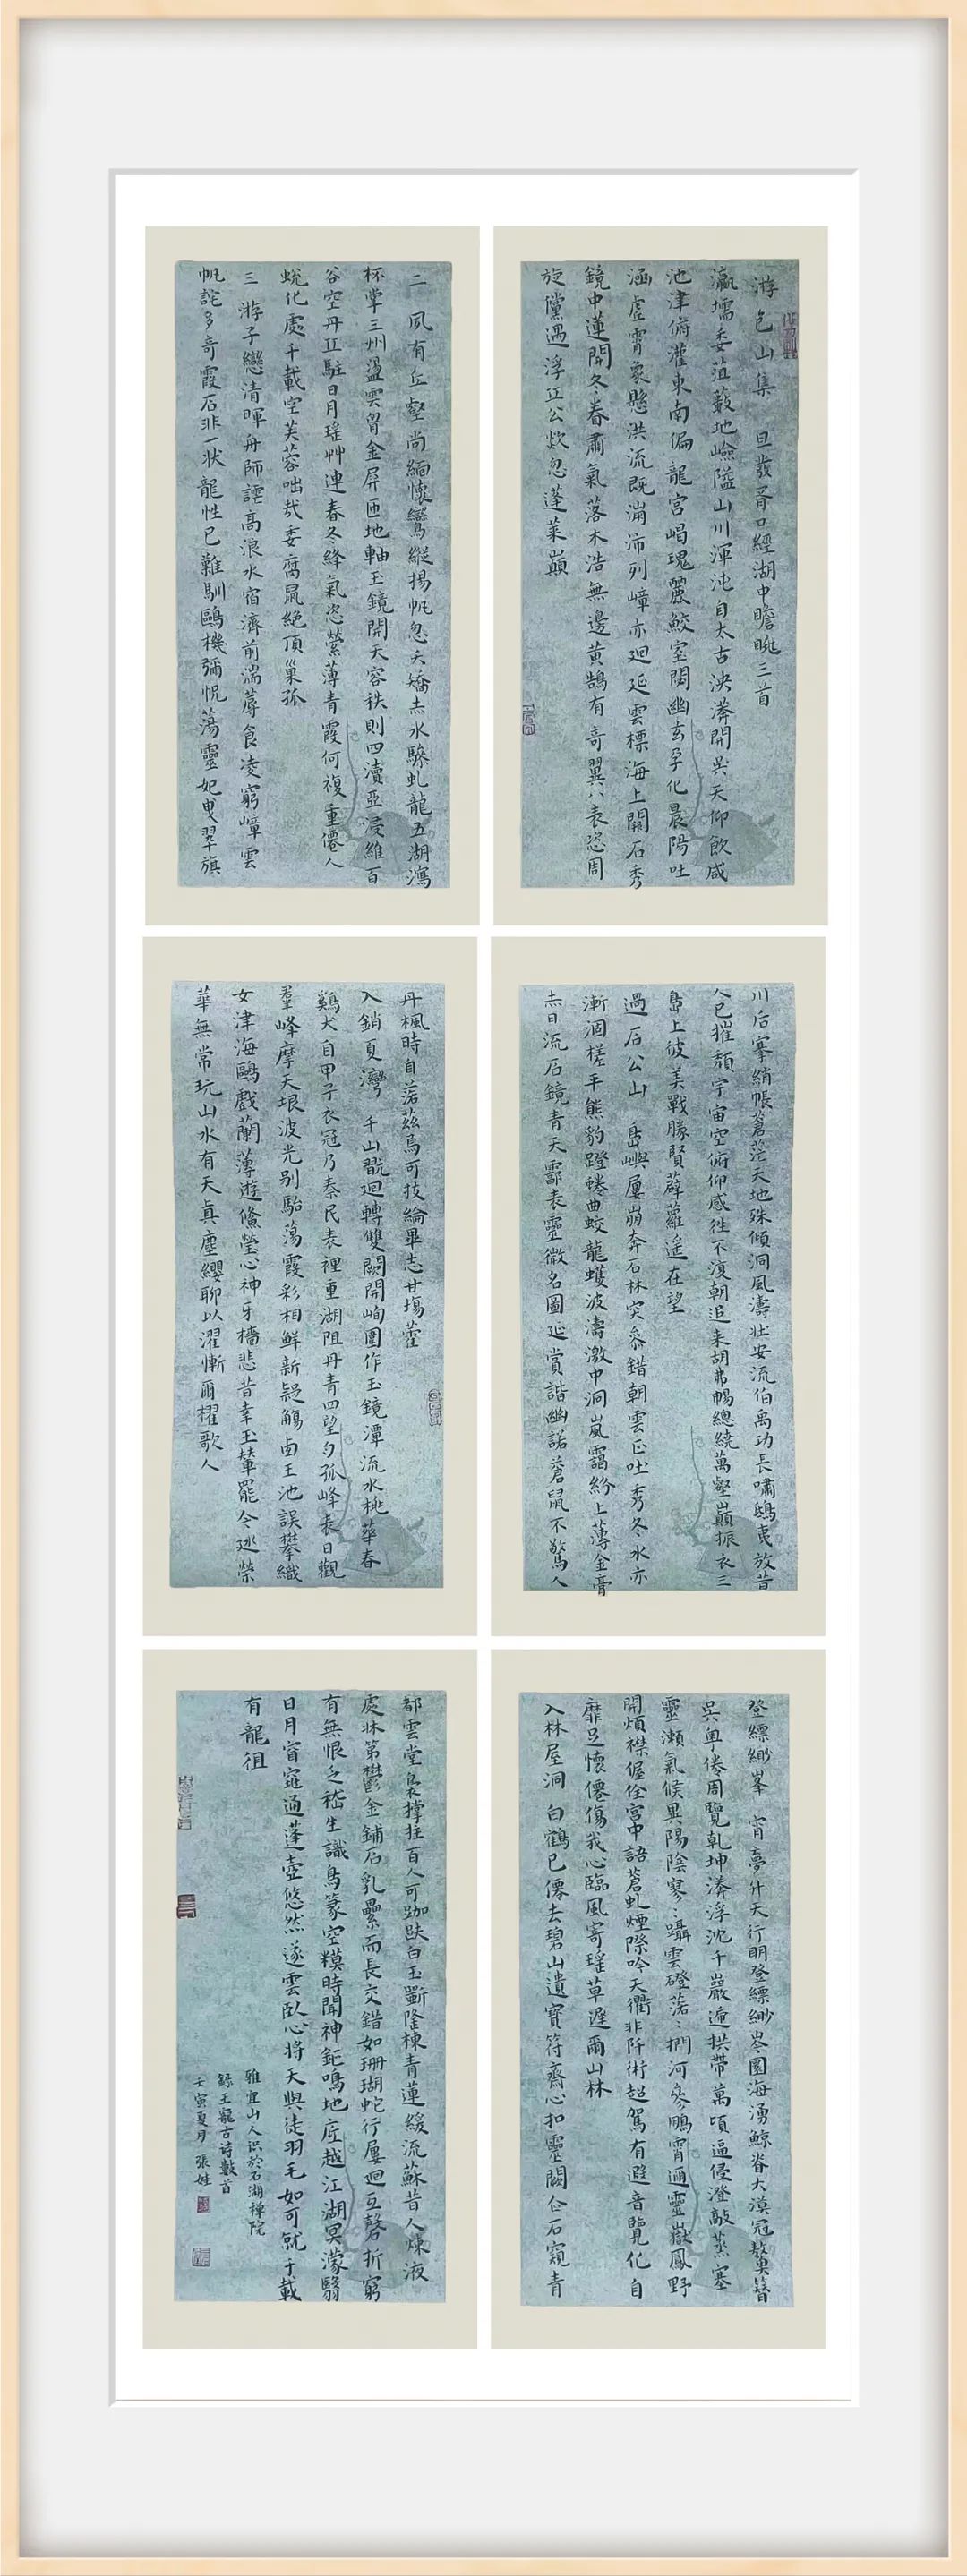 游包山集 旦發胥口經湖中瞻眺三首
瀛壖委菹藪地嶮隘山川渾沌自太古泱漭開吳天仰飲咸
池津俯灌東南偏龍宮崐瑰麗鮫室閟幽玄孕化晨陽吐
涵虛霄象懸洪流既滂沛列嶂亦迴延雲標海上闢石秀
鏡中蓮開冬眷肅氣落木浩無邊黃鵠有奇翼八表恣周
旋儻遇浮丘公欻忽蓬萊巔
二 夙有丘壑尚緬懷鸞縱揚帆忽夭矯赤水驂虬龍五湖瀉
杯掌三州盪雲胷金屏匝地軸玉鏡開天容秩則四瀆亞浸維百
谷空丹丘駐日月瑤艸連春冬絳氣恣縈薄青霞何複重僊人
蛻化處千載空芙蓉咄哉委腐鼠絕頂巢孤
三 游子戀清暉舟師誣高浪水宿濟前湍蓐食凌窮嶂雲
帆詫多奇霞石非一狀龍性已難馴鷗機彌怳蕩靈妃曳翠旗
川后搴綃帳蒼茫天地殊傾洞風濤壯安流伯禹功長嘯鴟夷放昔
人已摧頹宇宙空俯仰感徃不復朝追来胡弗暢總繞萬壑巔振衣三
島上彼美戰勝賢薜蘿遥在望
過石公山 島嶼屢崩奔石林突參錯朝雲正吐秀冬水亦
漸涸槎平熊豹蹬蜷曲蛟龍蠖波濤激中洞嵐靄紛上薄金膏
赤日流石鏡青天霩表靈微名圖延賞諧幽諾蒼鼠不驚人
丹楓時自落茲焉可投綸畢志甘場藿
入銷夏灣 千山翫迴轉雙闕開峋圍作玉鏡潭流水桃華春
鷄犬自甲子衣冠乃秦民表裡重湖阻丹青四望勻孤峰表日觀
羣峰摩天垠波光别駘蕩霞彩相鮮新疑觴鹵王池誤攀織
女津海鷗戲蘭薄遊鯈瑩心神牙檣悲昔幸玉輦罷今廵榮
華無常玩山水有天真塵纓聊以濯慚爾櫂歌人
登縹緲峯 宵夢升天行明登縹緲岑圜海湧鯨脊大漠冠鼇簪
吳粵倦周覽乾坤漭浮沈千巖遞拱帶萬頃逼侵澄敲蒸塞
靈瀬氣候異陽陰寥寥躡雲磴落落捫河參鵬霄迴靈嶽鳳野
開煩襟偓佺宮中語蒼虬煙際吟天衢非阡術超駕有遐音覽化自
靡足懷僊傷我心臨風寄瑤草遲爾山林
入林屋洞 白鶴已僊去碧山遺寶符齋心扣靈闕仚石窺青
都雲堂㒟撑拄百人可跏趺白玉斵隆棟青蓮緩流蘇昔人煉液
處牀第鬱金鋪石乳纍而長交錯如珊瑚蛇行屢迴互磬折窮
有無恨乏嵇生識鳥篆空糢時聞神鉅鳴地底越江湖冥濛翳
日月窅窱通蓬壺悠然遂雲臥心將天與徒羽毛如可就千載
有龍徂
雅宜山人识於石湖禪院
録王寵古诗數首
壬寅夏月 張姓